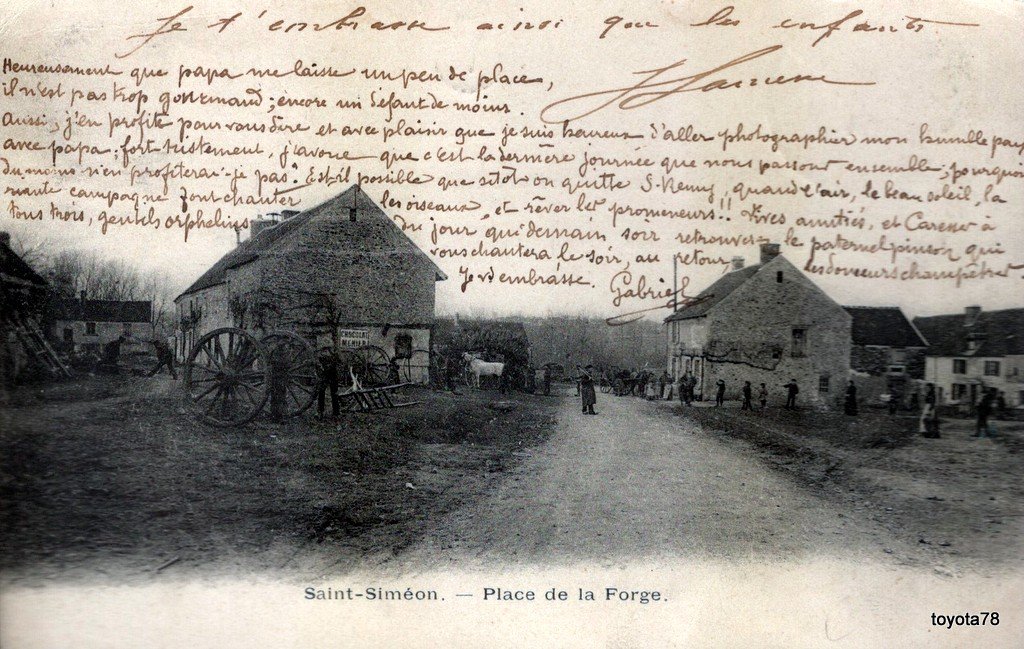 Je t'embrasse ainsi que les enfants
Heureusement que papa me laisse un peu de place,
il n'est pas trop gourmand; encore un défaut de moins.
aussi, j'en profite pour vous dire et avec plaisir que je suis heureux d'aller photographier mon humble pays
avec papa; fort tristement, j'avoue que c'est la dernière journée que nous passons ensemble; pourquoi
du moins n'en profiterai-je pas? Est-il possible que sitôt on quitte St-Remy, quand l'air, le beau soleil, la
campagne font chanter les oiseaux, et rêver les promeneurs!! Vives amitiés, et à
tous trois, gentils orphelins du jour qui demain soir retrouverez le paternel pinson qui
vous chantera le soir, au retour, les douceurs champêtres
Je vs embrasse. Gabriel
CHOCOLAT
MENIER
Saint-Siméon. — Place de la Forge.
toyota78